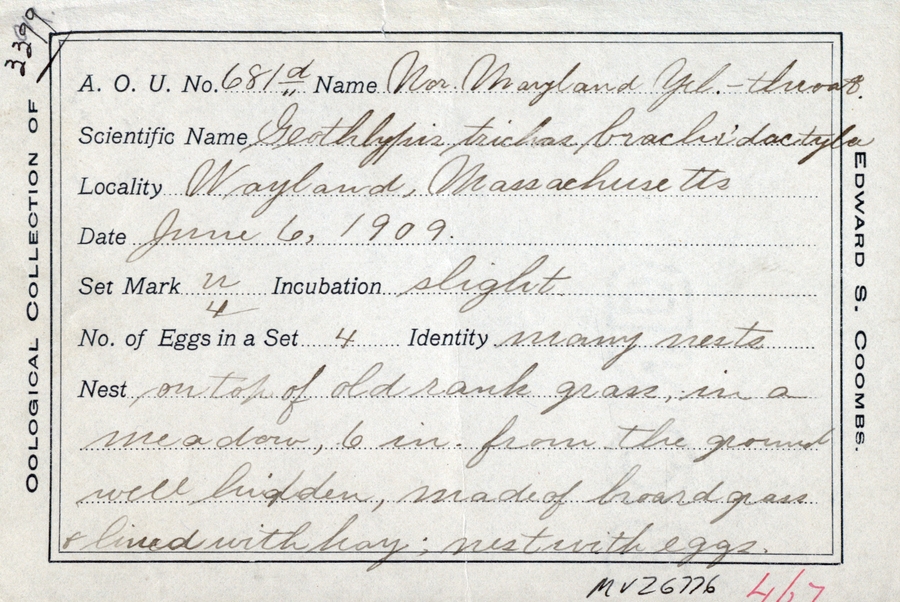 3299
OOLOGICAL COLLECTION OF
A. O. U. No. 681d Name Nor. Maryland Yel.-throat.
Scientific Name Geothlypis trichas brachidactyla
Locality Wayland, Massachusetts
Date June 6, 1909.
Set Mark n/4 Incubation slight
No. of Eggs in a Set 4 Identity many nests
Nest on top of old rank grass, in a
meadow, 6 in. from the ground
well hidden, made of board grass
& lined with hay; nest with eggs.
EDWARD S. COOMBS.
MVZ6776 4/7